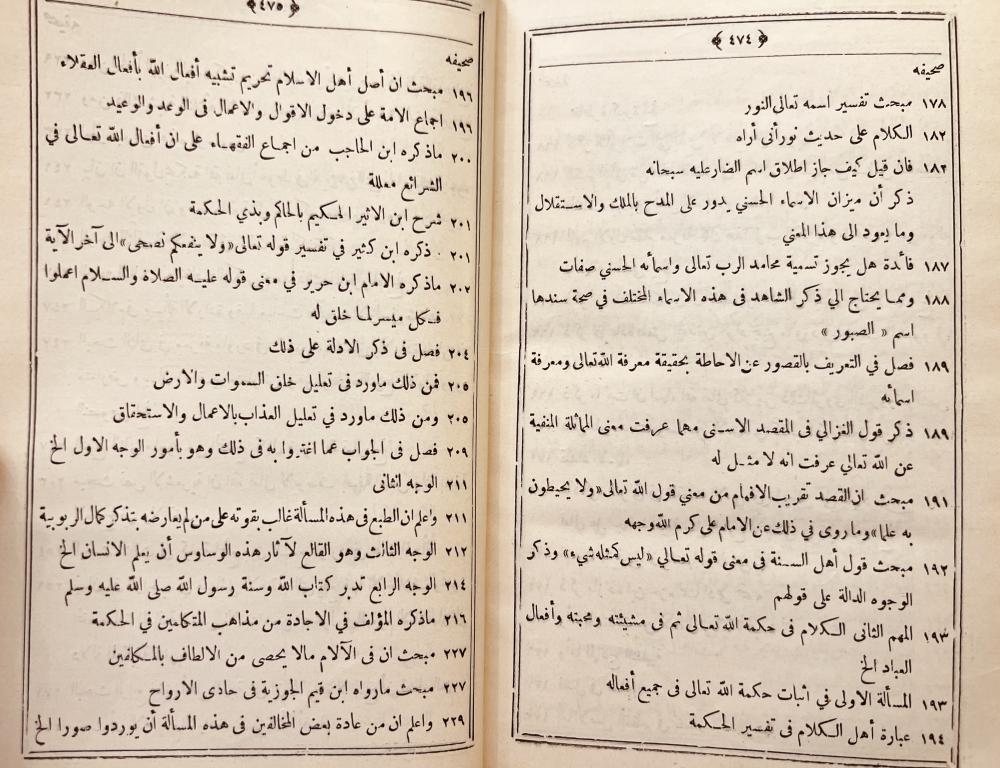 ﴿ ٤٧٤ ﴾
صحيفه
١٧٨ مبحث تفسير اسمه تعالى النور
١٨٢ الكلام على حديث نورأنى أراه
١٨٢ فان قيل كيف جاز اطلاق اسم الضار عليه سبحانه
ذكر أن ميزان الاسماء الحسني يدور على المدح بالملك والاستقلال
وما يعود الى هذا المعني
١٨٧ فائدة هل يجوز تسمية محامد الرب تعالى واسمأئه الحسني صفات
١٨٨ ومما يحتاج الي ذكر الشاهد فى هذه الاسماء المختلف في صحة سندها
اسم « الصبور »
١٨٩ فصل في التعريف بالقصور عن الاحاطة بحقيقة معرفة الله تعالى ومعرفة
اسمائه
١٨٩ ذكر قول الغزالي في المقصد الاسنى مهما عرفت معنى المماثلة المنفية
عن الله تعالي عرفت انه لا مثيل له
١٩١ مبحث ان القصد تقريب الافهام من معني قول الله تعالى «ولا يحيطون
به علما» وما روى في ذلك عن الامام على كرم الله وجهه
١٩٢ مبحث قول أهل السنة فى معنى قوله تعالي «ليس كمثله شيء» وذكر
الوجوه الدالة على قولهم
١٩٣ المهم الثانى الكلام فى حكمة الله تعالى ثم فى مشيئته ومحبته وأفعال
العباد الخ
١٩٣ المسألة الاولى في اثبات حكمة الله تعالى فى جميع أفعاله
١٩٤ عبارة أهل الكلام فى تفسير الحكمة
﴿ ٤٧٥ ﴾
صحيفه
١٩٦ مبحث ان أصل أهل الاسلام تحريم تشبيه أفعال الله بأفعال العقلاء
١٩٦ اجماع الامة على دخول الاقوال والاعمال فى الوعد والوعيد
٢٠٠ ماذكره ابن الحاجب من اجماع الفقهاء على ان أفعال الله تعالى في
الشرائع معللة
٢٠١ شرح ابن الاثير الحكيم بالحاكم وبذي الحكمة
٢٠١ ذكره ابن كثير في تفسير قوله تعالى «ولا ينفعكم نصحى» الى آخر الآية
٢٠٢ ماذكره الامام ابن جرير في معنى قوله عليه الصلاة والسلام اعملوا
فكل ميسر لما خلق له
٢٠٤ فصل فى ذكر الادلة على ذلك
٢٠٥ فمن ذلك ماورد فى تعليل خلق السموات والارض
٢٠٥ ومن ذلك ماورد في تعليل العذاب بالاعمال والاستحقاق
٢٠٩ فصل فى الجواب عما اغتروا به فى ذلك وهو بأمور الوجه الاول الخ
٢١١ الوجه الثانى
٢١١ واعلم ان الطبع فى هذه المسألة غالب بقوته على من لم يعارضه بتذكر كمال الربوبية
٢١٢ الوجه الثالث وهو القالع لآثار هذه الوساوس أن يعلم الانسان الخ
٢١٤ الوجه الرابع تدبر كتاب الله وسنة رسول الله صلى الله عليه وسلم
٢١٦ ماذكره المؤلف في الاجادة من مذاهب المتكلمين في الحكمة
٢٢٧ مبحث ان فى الآلام مالا يحصى من الالطاف بالمكلفين
٢٢٧ مبحث مارواه ابن قيم الجوزية فى حادى الارواح
٢٢٩ واعلم ان من عادة بعض المخالفين فى هذه المسألة أن يوردوا صورا الخ